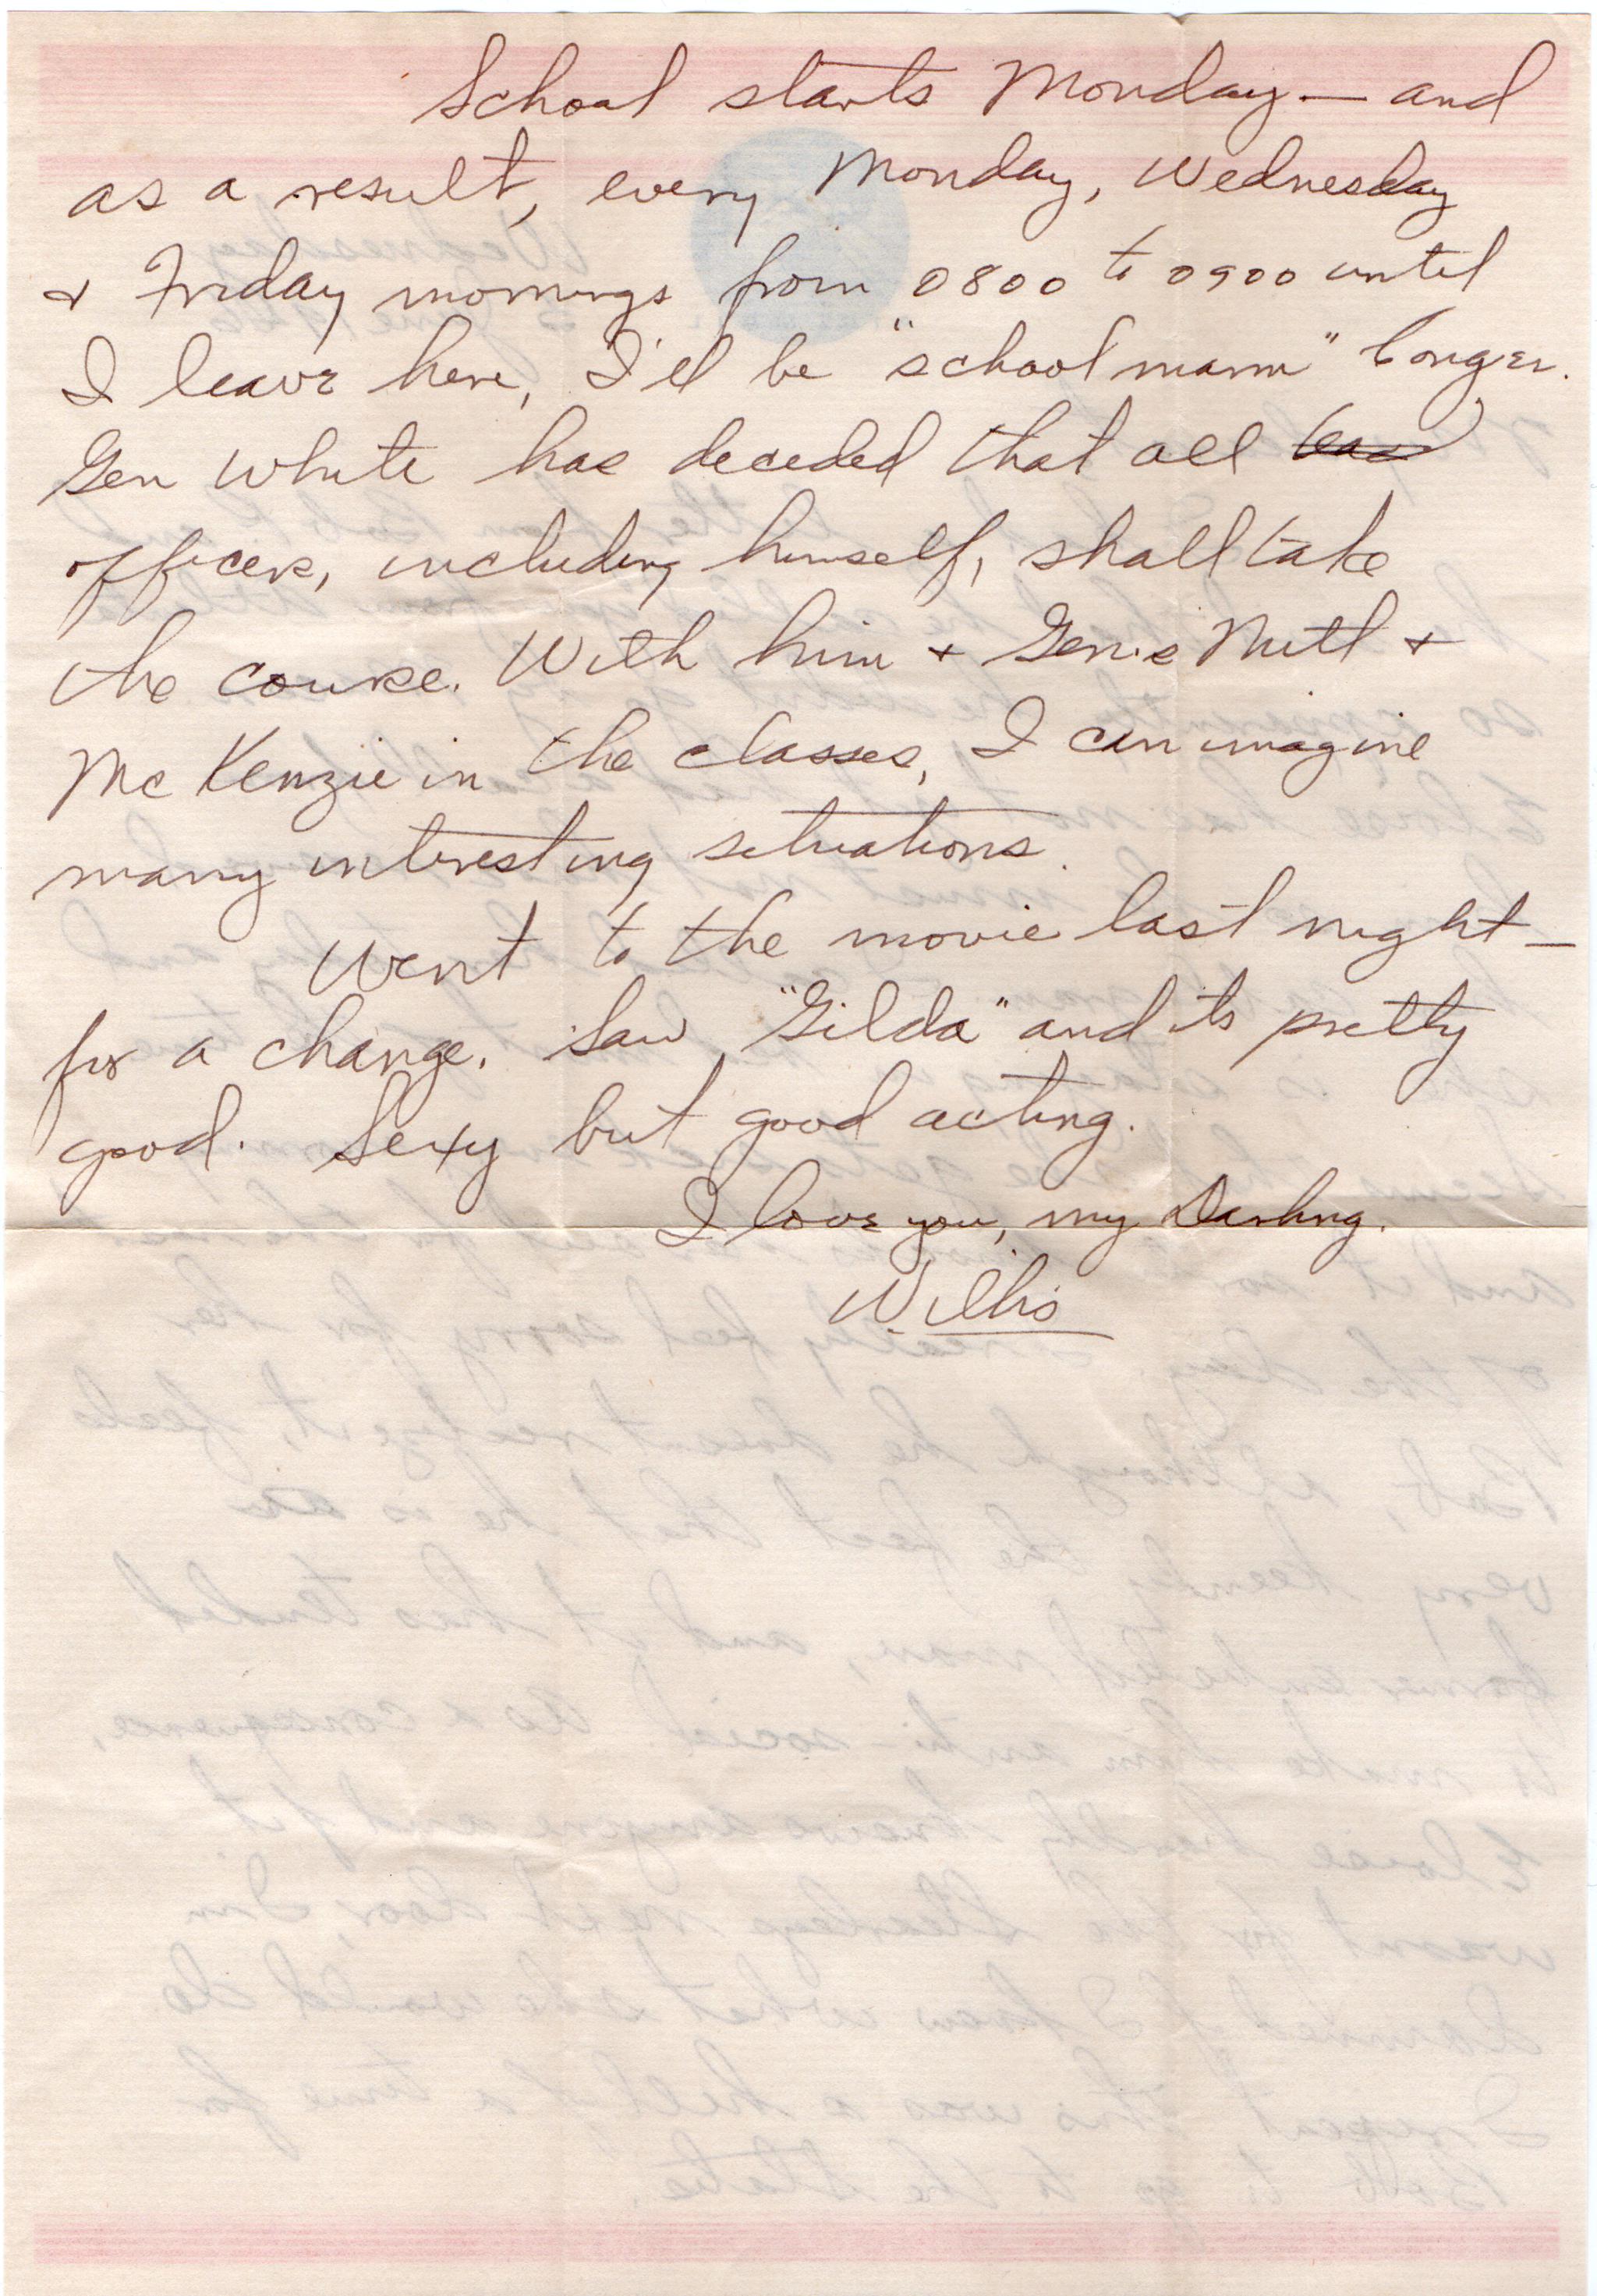 School starts Monday — and
as a result, every Monday, Wednesday
+ Friday mornings from 0800 to 0900 until
I leave here, I'll be "school marm" Conger.
Gen White has decided that all
officers, including himself, shall take
the course. With him + Gen's Muth +
McKenzie in the classes, I can imagine
many interesting situations.
Went to the movie last night —
for a change. Saw "Gilda" and its pretty
good. Sexy but good acting.
I love you, my Darling.
Willis